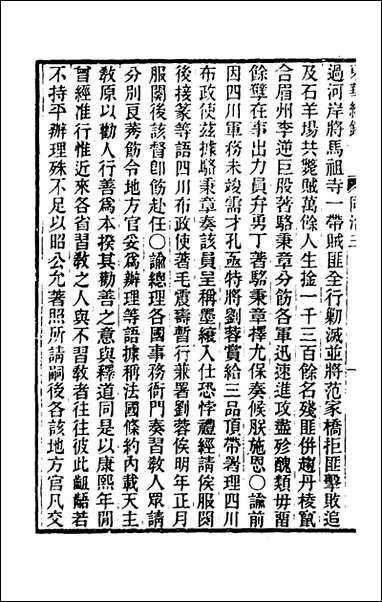 過河岸將馬祖寺一帶賊匪全行勦滅並將范家橋拒匪擊敗追
及石羊場共斃賊萬餘人生擒一千三百餘名殘匪併趨丹棱竄
合眉州李逆巨股著駱秉章分飭各軍迅速進攻盡殄醜類毋留
餘孽在事出力員弁勇丁著駱秉章擇尤保奏候朕施恩〇諭前
因四川軍務未竣需才孔亟特將劉蓉賞給三品頂帶署理四川
布政使茲據駱秉章奏該員呈稱墨縗入仕恐悖禮經請俟服闋
後接篆等語四川布政使著毛震壽暫行兼署劉蓉俟明年正月
服闋後該督卽飭赴任〇諭總理各國事務衙門奏習敎人眾請
分別良莠飭令地方官妥爲辦理等語據稱法國條約內載天主
敎原以勸人行善爲本揆其勸善之意與釋道同是以康熙年閒
曾經准行惟近來各省習敎之人與不習敎者往往彼此齟齬若
不持平辦理殊不足以昭公允著照所請嗣後各該地方官凡交